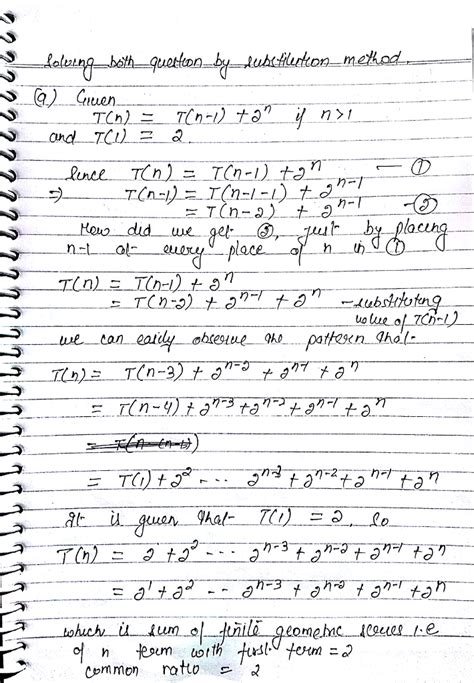 Solving both question by substitution method.
(a) Given
T(n) = T(n-1) + 2^n if n>1
and T(1) = 2
Since T(n) = T(n-1) + 2^n — ①
⇒ T(n-1) = T(n-1-1) + 2^{n-1}
= T(n-2) + 2^{n-1} — ②
How did we get ②, just by placing
n-1 at every place of n in ①
T(n) = T(n-1) + 2^n
= T(n-2) + 2^{n-1} + 2^n - substituting
value of T(n-1)
we can easily observe the pattern that-
T(n) = T(n-3) + 2^{n-2} + 2^{n-1} + 2^n
= T(n-4) + 2^{n-3} + 2^{n-2} + 2^{n-1} + 2^n
= T(1) + 2^2 --- 2^{n-3} + 2^{n-2} + 2^{n-1} + 2^n
It is given that T(1) = 2, so
T(n) = 2 + 2^2 --- 2^{n-3} + 2^{n-2} + 2^{n-1} + 2^n
= 2^1 + 2^2 -- 2^{n-3} + 2^{n-2} + 2^{n-1} + 2^n
which is sum of finite geometric series i.e
of n term with first term = 2
common ratio = 2